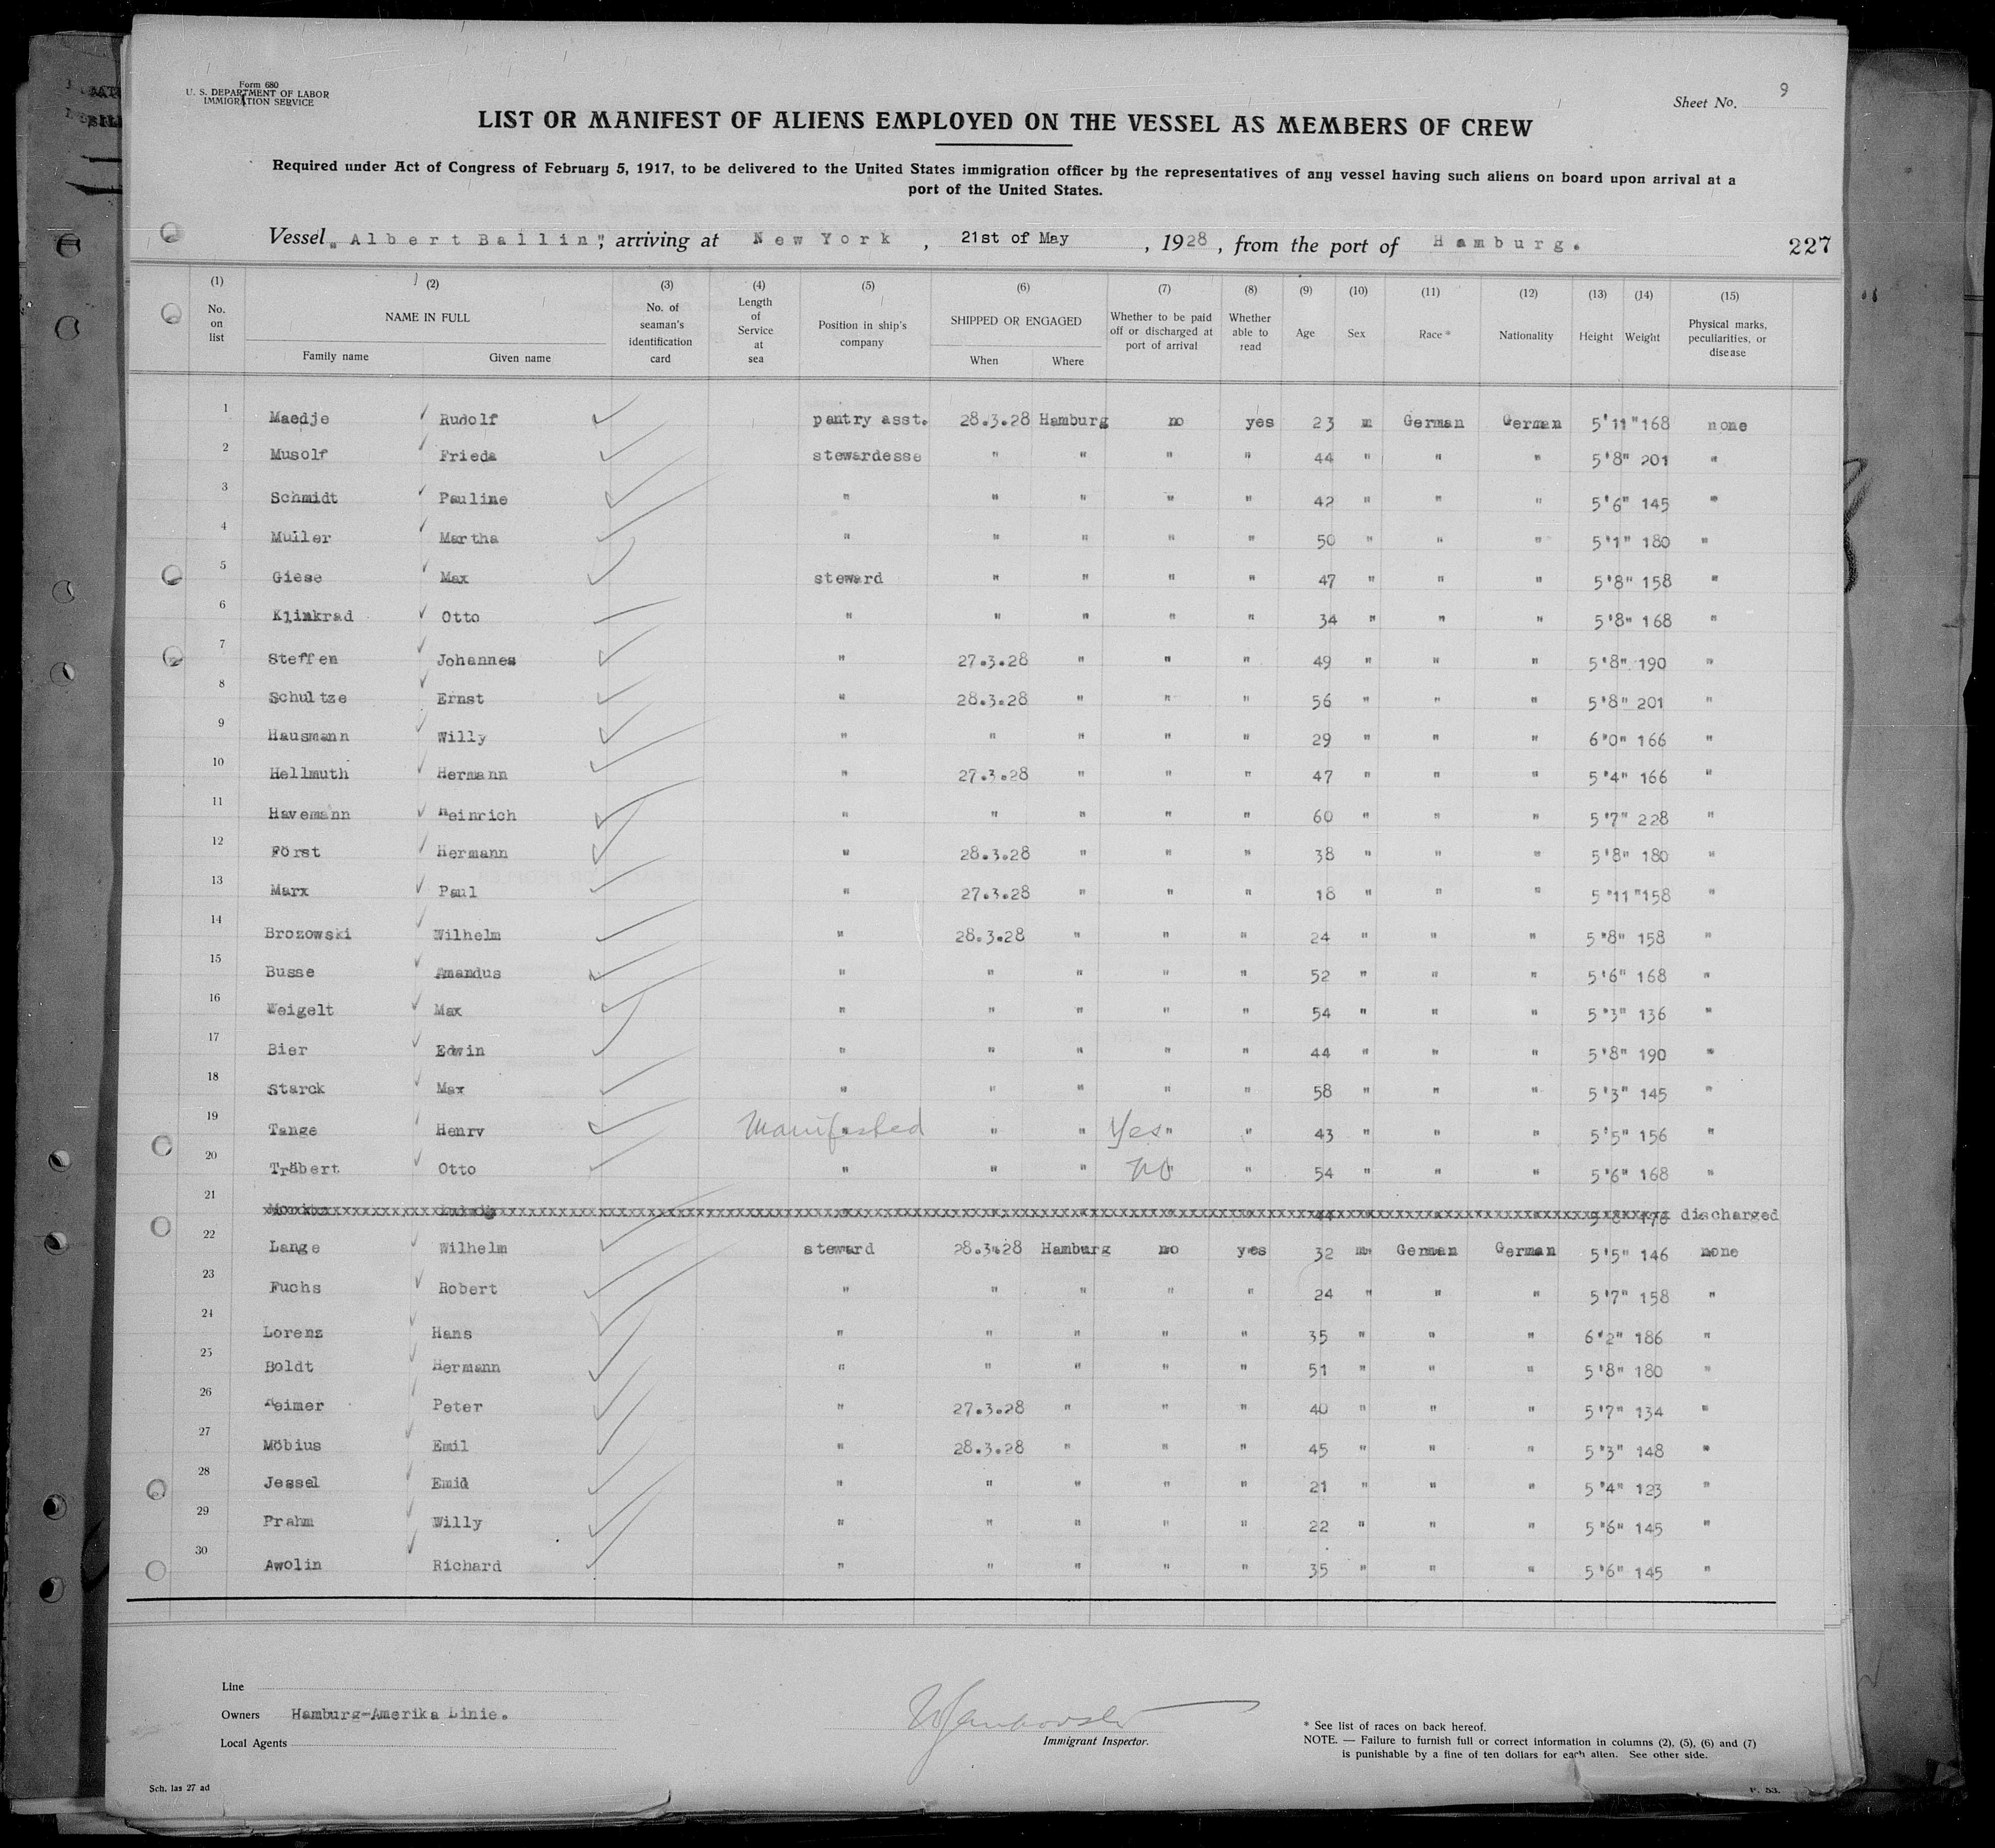 Form 680
U. S. DEPARTMENT OF LABOR
IMMIGRATION SERVICE
Sheet No. 9
LIST OR MANIFEST OF ALIENS EMPLOYED ON THE VESSEL AS MEMBERS OF CREW
Required under Act of Congress of February 5, 1917, to be delivered to the United States immigration officer by the representatives of any vessel having such aliens on board upon arrival at a
port of the United States.
Vessel "Albert Ballin", arriving at New York, 21st of May, 1928, from the port of Hamburg. 227
(1) (2) (3) (4) (5) (6) (7) (8) (9) (10) (11) (12) (13) (14) (15)
No. on list NAME IN FULL Family name Given name No. of seaman's identification card Length of Service at sea Position in ship's company SHIPPED OR ENGAGED When Where Whether to be paid off or discharged at port of arrival Whether able to read Age Sex Race* Nationality Height Weight Physical marks, peculiarities, or disease
1 Maedje Rudolf pantry asst. 28.3.28 Hamburg no yes 23 m German German 5'11" 168 none
2 Musolf Frieda stewardesse " " " " 44 " " " 5'8" 201 "
3 Schmidt Pauline " " " " " 42 " " " 5'6" 145 "
4 Muller Martha " " " " " 50 " " " 5'1" 180 "
5 Giese Max steward " " " " 47 " " " 5'8" 158 "
6 Klinkrad Otto " " " " " 34 " " " 5'8" 168 "
7 Steffen Johannes " 27.3.28 " " " 49 " " " 5'8" 190 "
8 Schultze Ernst " 28.3.28 " " " 56 " " " 5'8" 201 "
9 Hausmann Willy " " " " " 29 " " " 6'0" 166 "
10 Hellmuth Hermann " 27.3.28 " " " 47 " " " 5'4" 166 "
11 Havemann Heinrich " " " " " 60 " " " 5'7" 228 "
12 Först Hermann " 28.3.28 " " " 38 " " " 5'8" 180 "
13 Marx Paul " 27.3.28 " " " 18 " " " 5'11" 158 "
14 Brozowski Wilhelm " 28.3.28 " " " 24 " " " 5'8" 158 "
15 Busse Amandus " " " " " 52 " " " 5'6" 168 "
16 Weigelt Max " " " " " 54 " " " 5'3" 136 "
17 Bier Edwin " " " " " 44 " " " 5'8" 190 "
18 Starck Max " " " " " 58 " " " 5'3" 145 "
19 Tange Henry Manifested " " " Yes " " 43 " " " 5'5" 156 "
20 Träbert Otto " " " no " " 54 " " " 5'6" 168 "
21 Ludwig " " " " " 44 " " " 5'8" 178 discharged
22 Lange Wilhelm steward 28.3.28 Hamburg no yes 32 m German German 5'5" 146 none
23 Fuchs Robert " " " " " 24 " " " 5'7" 158 "
24 Lorenz Hans " " " " " 35 " " " 6'2" 186 "
25 Boldt Hermann " " " " " 51 " " " 5'8" 180 "
26 Reimer Peter " 27.3.28 " " " 40 " " " 5'7" 134 "
27 Möbius Emil " 28.3.28 " " " 45 " " " 5'3" 148 "
28 Jessel Emid " " " " " 21 " " " 5'4" 123 "
29 Prahm Willy " " " " " 22 " " " 5'6" 145 "
30 Awolin Richard " " " " " 35 " " " 5'6" 145 "
Line
Owners Hamburg-Amerika Linie.
Local Agents
Immigrant Inspector.
* See list of races on back hereof.
NOTE. — Failure to furnish full or correct information in columns (2), (5), (6) and (7)
is punishable by a fine of ten dollars for each alien. See other side.
Sch. las 27 ad
P. 53.